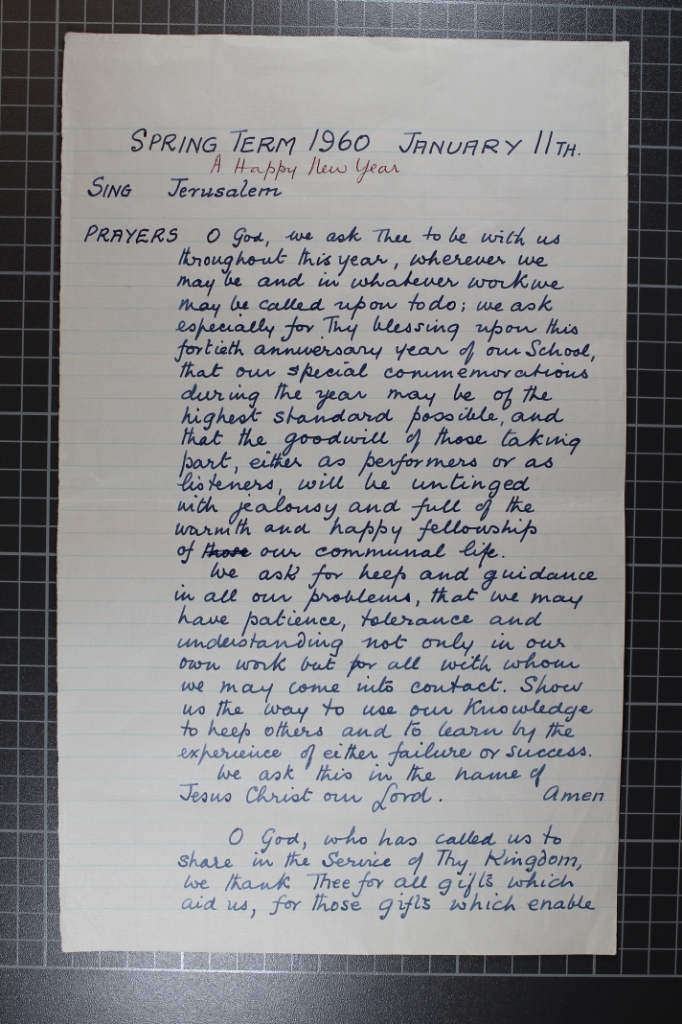 SPRING TERM 1960 JANUARY 11TH.
A Happy New Year
SING Jerusalem
PRAYERS O God, we ask Thee to be with us
throughout this year, wherever we
may be and in whatever work we
may be called upon to do; we ask
especially for Thy blessing upon this
fortieth anniversary year of our School,
that our special commemorations
during the year may be of the
highest standard possible, and
that the goodwill of those taking
part, either as performers or as
listeners, will be untinged
with jealousy and full of the
warmth and happy fellowship
of those our communal life.
We ask for help and guidance
in all our problems, that we may
have patience, tolerance and
understanding not only in our
own work but for all with whom
we may come into contact. Show
us the way to use our Knowledge
to help others and to learn by the
experience of either failure or success.
We ask this in the name of
Jesus Christ our Lord. Amen
O God, who has called us to
share in the Service of Thy Kingdom,
we thank Thee for all gifts which
aid us, for those gifts which enable